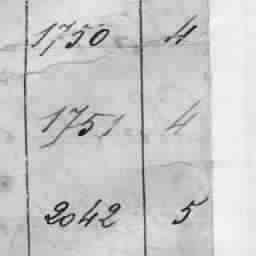 1750 4
1751 4
2042 5